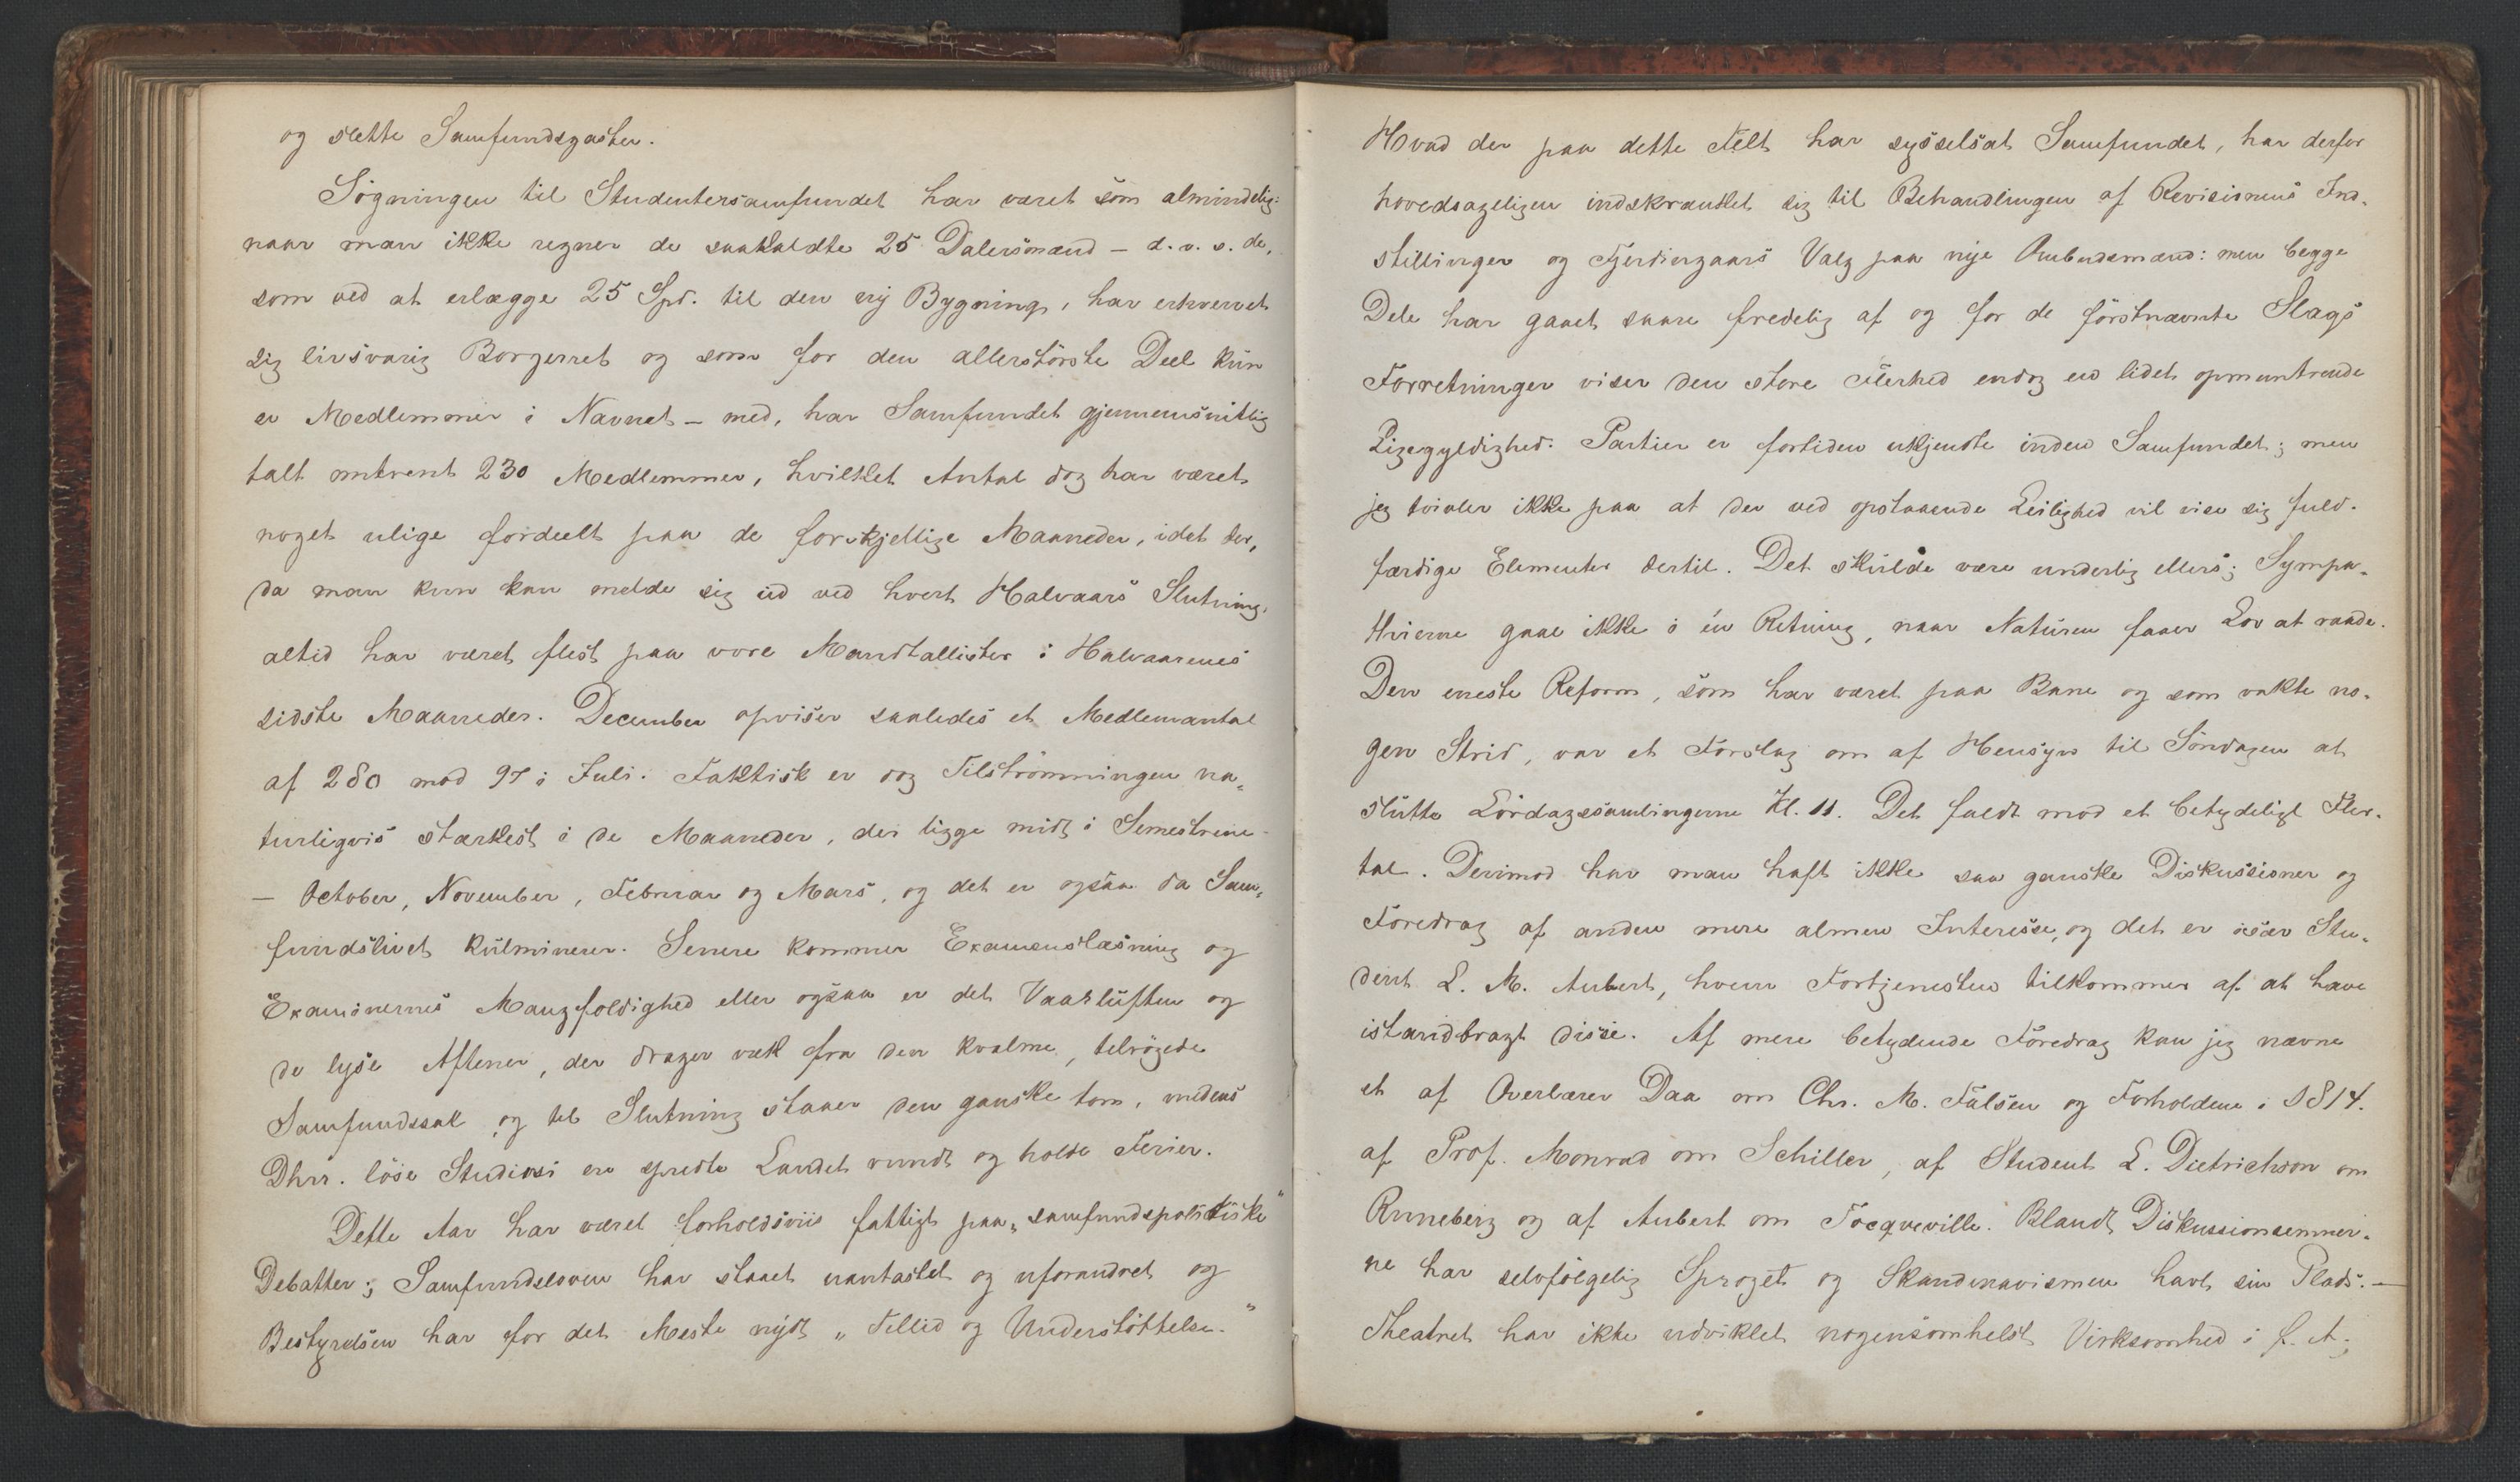 og slette Samfundsgaster.
Søgningen til Studentersamfundet har været som almindelig:
naar man ikke regner de saakaldte 25 Dalersmænd – d. v. s. de,
som ved at erlægge 25 Spd. til den ny Bygning, har erhvervet
sig livsvarig Borgerret og som for den allerstørste Deel kun
er Medlemmer i Navnet – med, har Samfundet gjennemsnitlig
talt omtrent 230 Medlemmer, hvilket Antal dog har været
noget ulige fordeelt paa de forskjellige Maaneder, idet der,
da man kun kan melde sig ud ved hvert Halvaars Slutning,
altid har været flest paa vore Mandtallister i Halvaarenes
sidste Maaneder. December opviser saaledes et Medlemantal
af 280 mod 97 i Juli. Faktisk er dog Tilstrømningen na„
turligvis stærkest i de Maaneder, der ligge midt i Semestrene –
– October, November, Februar og Mars, og det er ogsaa da Sam„
fundslivet kulminerer. Senere kommer Examenslæsning og
Examinernes Mangfoldighed eller ogsaa er det Vaarluften og
de lyse Aftener, der drager væk fra den kvalme, tilrøgede
Samfundssal og til Slutning staaer den ganske tom, medens
Dhrr. løse Studiosi ere spredte Landet rundt og holde Ferier.
Dette Aar har været forholdsviis fattigt paa „samfundspolitiske“
Debatter; Samfundsloven har staaet uantastet og uforandret og
Bestyrelsen har for det Meste nydt „Tillid og Understøttelse.“
Hvad der paa dette Felt har sysselsat Samfundet, har derfor
hovedsageligen indskrænket sig til Behandlingen af Revisionens Ind„
stillinger og Fjerdingaars Valg paa nye Ombudsmænd: men begge
Dele har gaaet saare fredelig af og for de førstnævnte Slags
Forretninger viser den store Flerhed endog en lidet opmuntrende
Ligegyldighed. Partier er fortiden ukjendte inden Samfundet; men
jeg tvivler ikke paa at der ved opstaaende Leilighed vil vise sig fuld„
færdige Elementer dertil. Det skulde være underlig ellers; Sympa„
thierne gaae ikke i én Retning, naar Naturen faaer Lov at raade.
Den eneste Reform, som har været paa Bane og som vakte no„
gen Strid, var et Forslag om af Hensyn til Søndagen at
slutte Lørdagssamlingerne Kl. 11. Det faldt mod et betydeligt Fler„
tal. Derimod har man haft ikke saa ganske Diskussioner og
Foredrag af anden mere almen Interesse, og det er især Stu„
dent L. M. Aubert, hvem Fortjenesten tilkommer af at have
istandbragt disse. Af mere betydende Foredrag kan jeg nævne
et af Overlærer Daa om Chr. M. Falsen og Forholdene i 1814.
af Prof. Monrad om Schiller, af Student L. Dietrichson om
Runeberg og af Aubert om Tocqveville. Blandt Diskussionsemner„
ne har selvfølgelig Sproget og Skandinavismen havt sin Plads. –
Theatret har ikke udviklet nogensomhelst Virksomhed i f. A.;